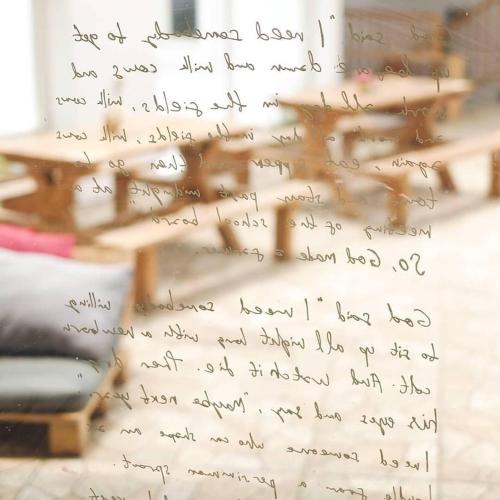 God said "I need somebody to get
up before dawn and milk cows and
work all day in the fields, milk cows
and work all day in the fields, milk cows
again, eat supper and then go to
town and past midnight" at a
meeting of the school board
So, God made a farmer.
God said "I need somebody willing
to sit up all night long with a newborn
colt. And watch it die. Then dry
his eyes and say, "Maybe next year."
I need someone who can shape an ax
handle from a persimmon sprout.